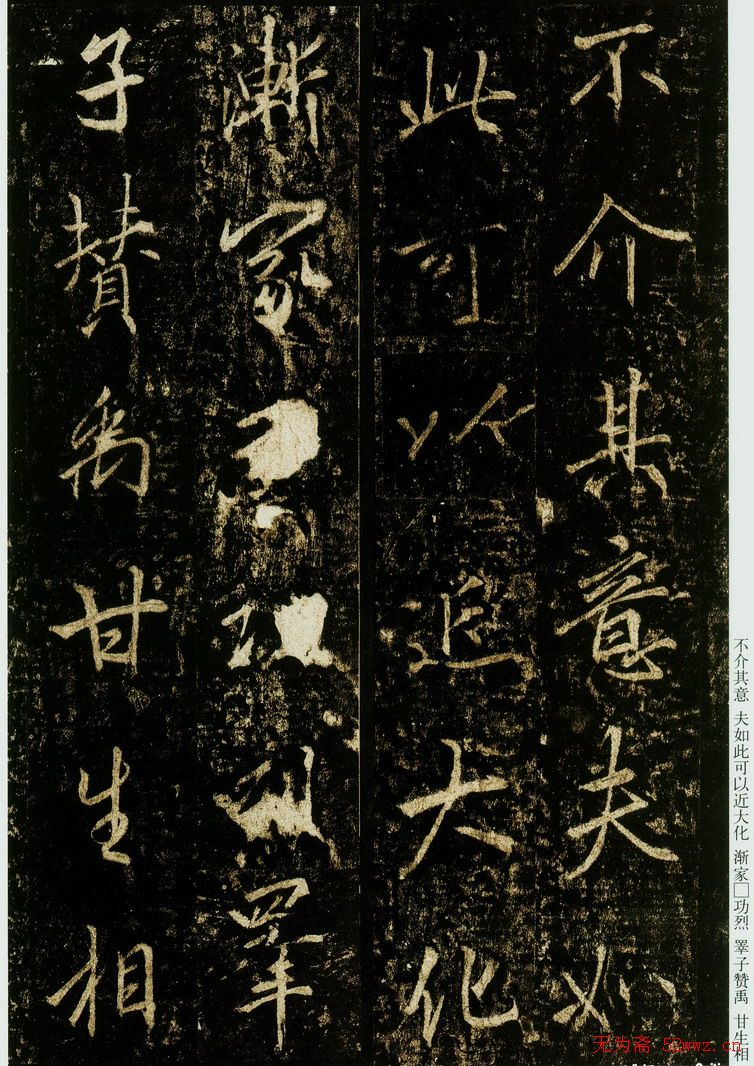 不介其意夫如
此可以追大化
漸家睪
子贊禹甘生相
不介其意 夫如此可以近大化 渐家□功烈 睪子赞禹 甘生相
无为斋·52wwz.cn